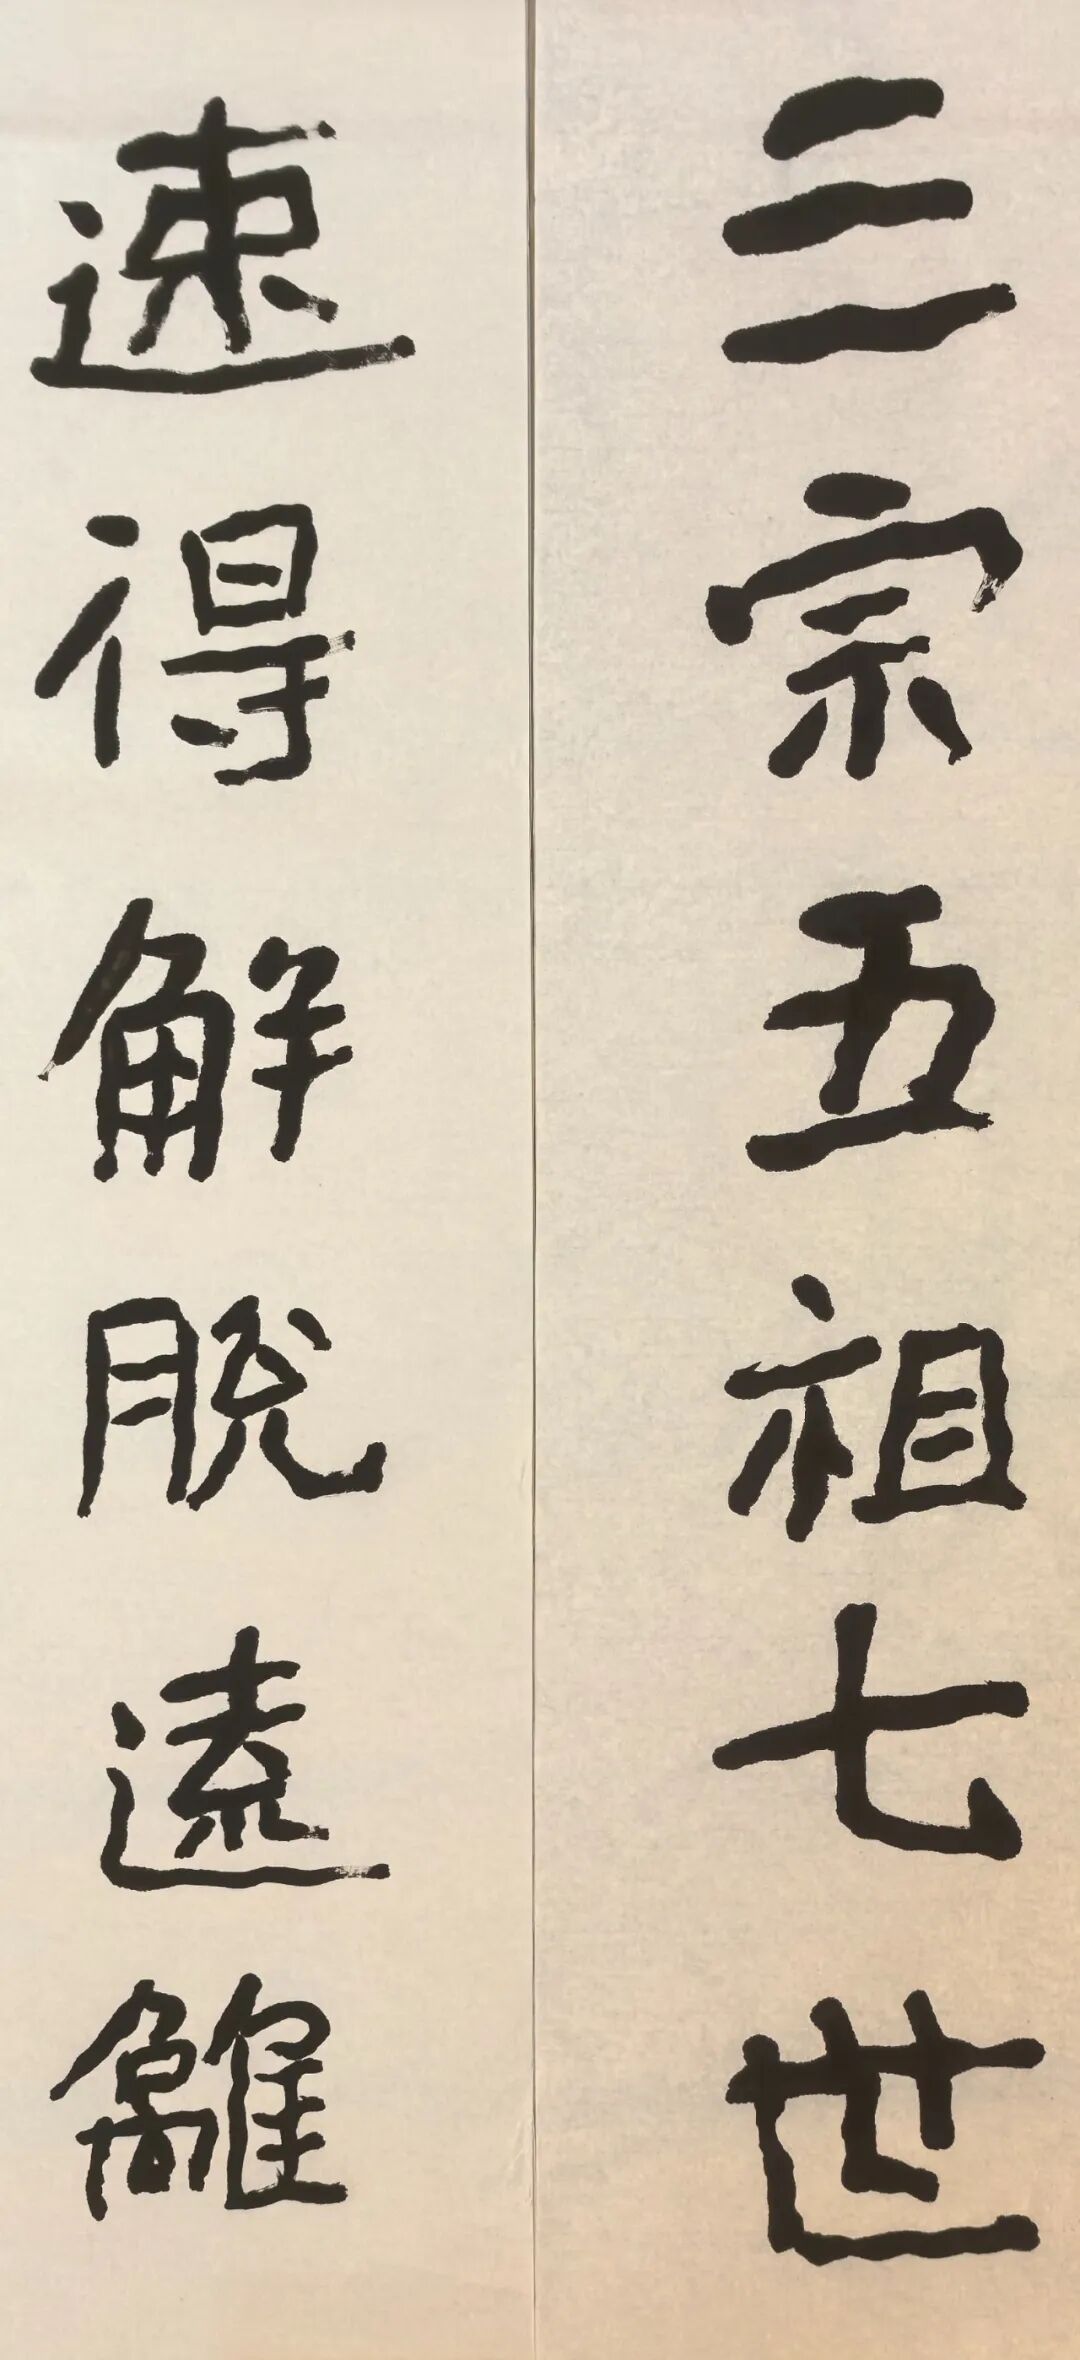 三宗五祖七世
速得解脫遠離